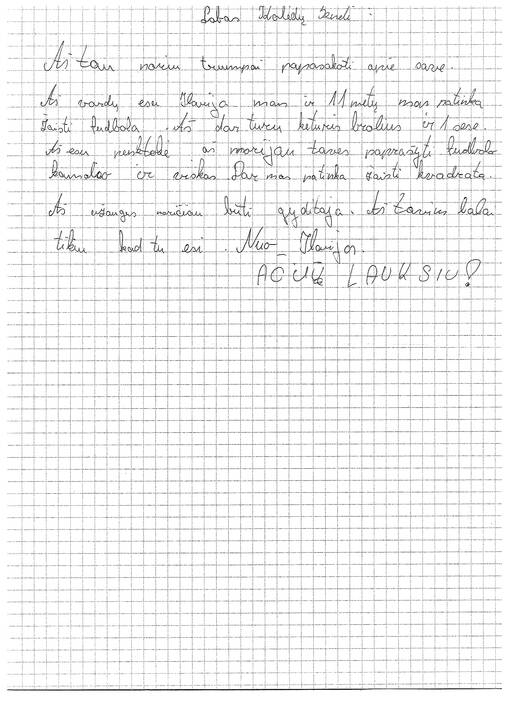 Labas Kalėdų Seneli:
Aš tau noriu trumpai papasakoti apie save.
Aš vardu esu Ilarija man ir 11 metų man patinka
žaisti fudbola. Aš dar turiu keturis brolius ir 1 sese.
Aš esu penktokė aš norijau taves paprašyti fudbolo
kamuolio ir viskas. Dar man patinka žaisti kvadrata.
Aš užaugus noričiau būti gyditaja. Aš tavim labai
tikiu kad tu esi. Nuo Ilarijos.
AČIŪ LAUKSIU!